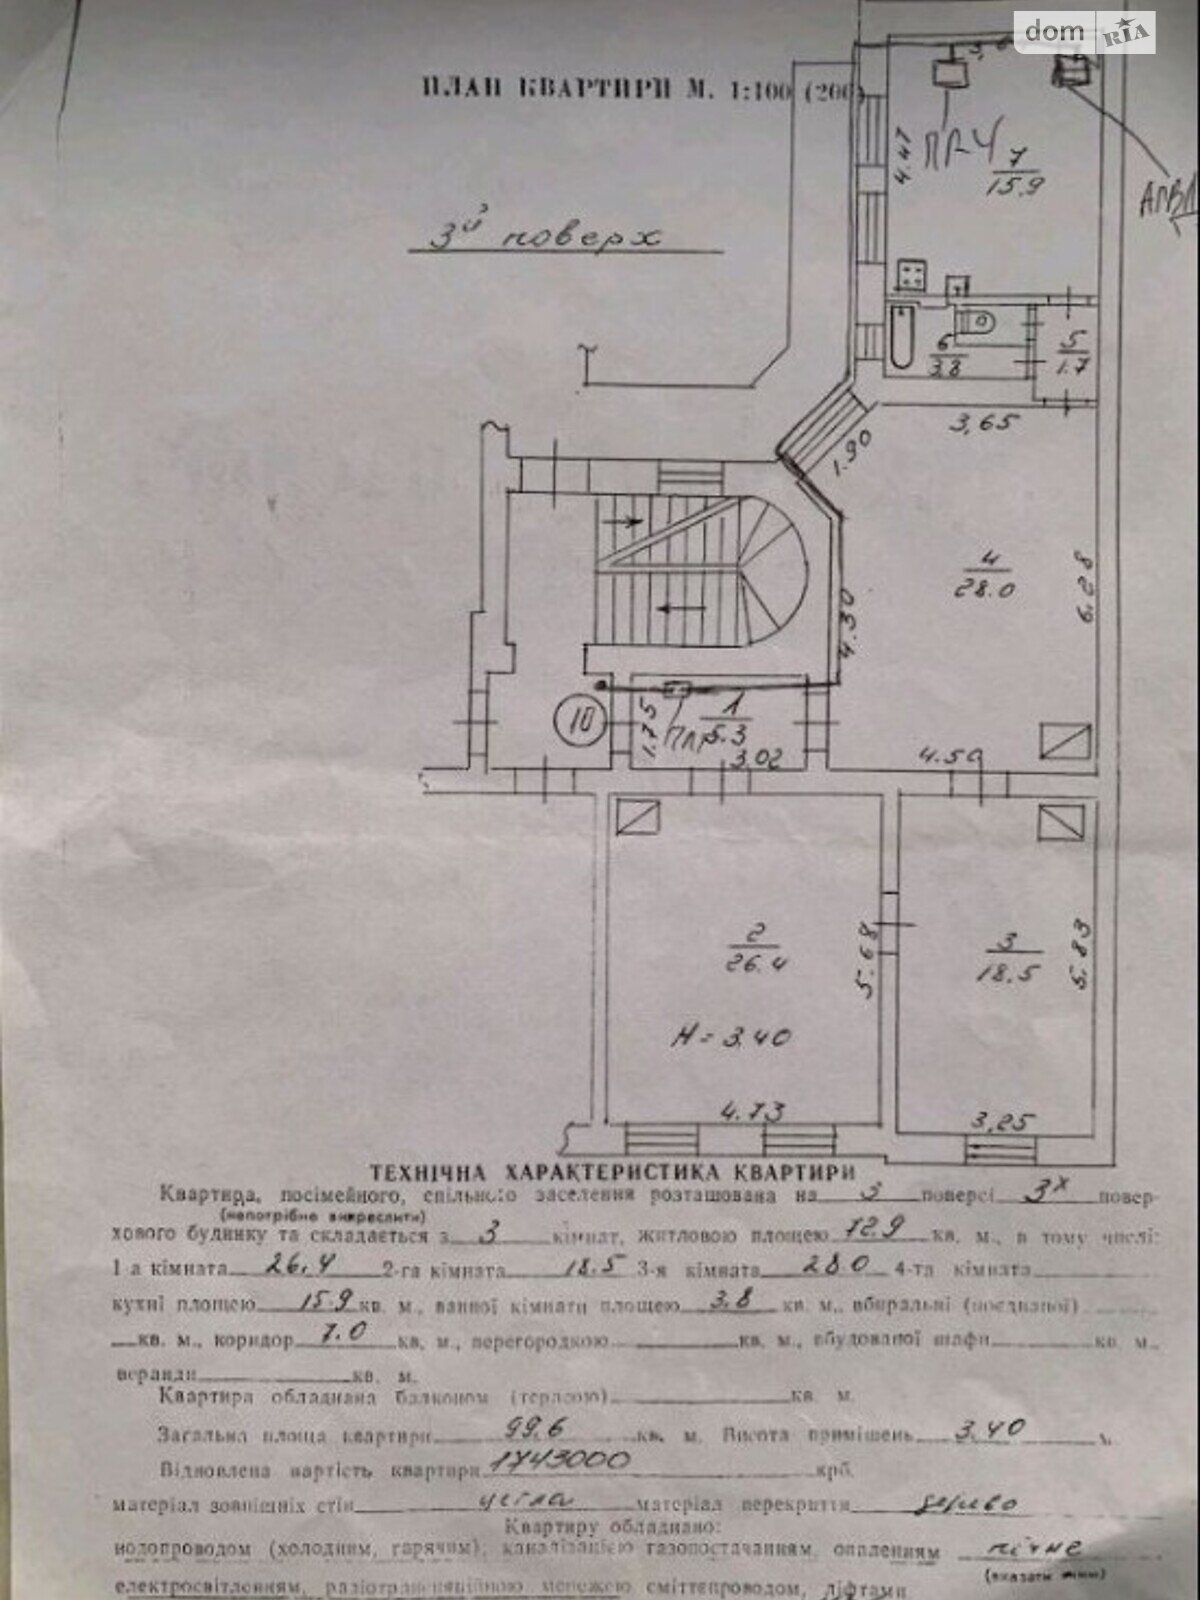 dom RIA
ПЛАН КВАРТИРИ М. 1:100 (200)
3,6
4.47
ПГ-4
7
15.9
3й поверх
6
3.8
5
1.7
3,65
1.90
4
28.0
6.28
4.50
10
1.75
ПЛГ
1
5.3
3.02
4.50
2
26.4
5.68
3
18.5
5.83
H = 3.40
4.73
3,25
ТЕХНІЧНА ХАРАКТЕРИСТИКА КВАРТИРИ
Квартира, посімейного, спільного заселення розташована на 3 поверсі 3х повер-
(непотрібне викреслити)
хового будинку та складається з 3 кімнат, житловою площею 72.9 кв. м., в тому числі:
1-а кімната 26,4 2-га кімната 18.5 3-я кімната 28.0 4-та кімната
кухні площею 15.9 кв. м., ванної кімнати площею 3.8 кв. м., вбиральні (поєднаної)
кв. м., коридор 7.0 кв. м., перегородкою кв. м., вбудованої шафи кв. м.,
веранди кв. м.
Квартира обладнана балконом (терасою) кв. м.
Загальна площа квартири 99.6 кв. м. Висота приміщень 3.40 м.
Відновлена вартість квартири 1743000 крб.
матеріал зовнішніх стін цегла матеріал перекриття дерево
Квартиру обладнано:
водопроводом (холодним, гарячим), каналізацією газопостачанням, опаленням пічне
(вказати яким)
електросвітленням, радіотрансляційною мережею сміттєпроводом, ліфтами